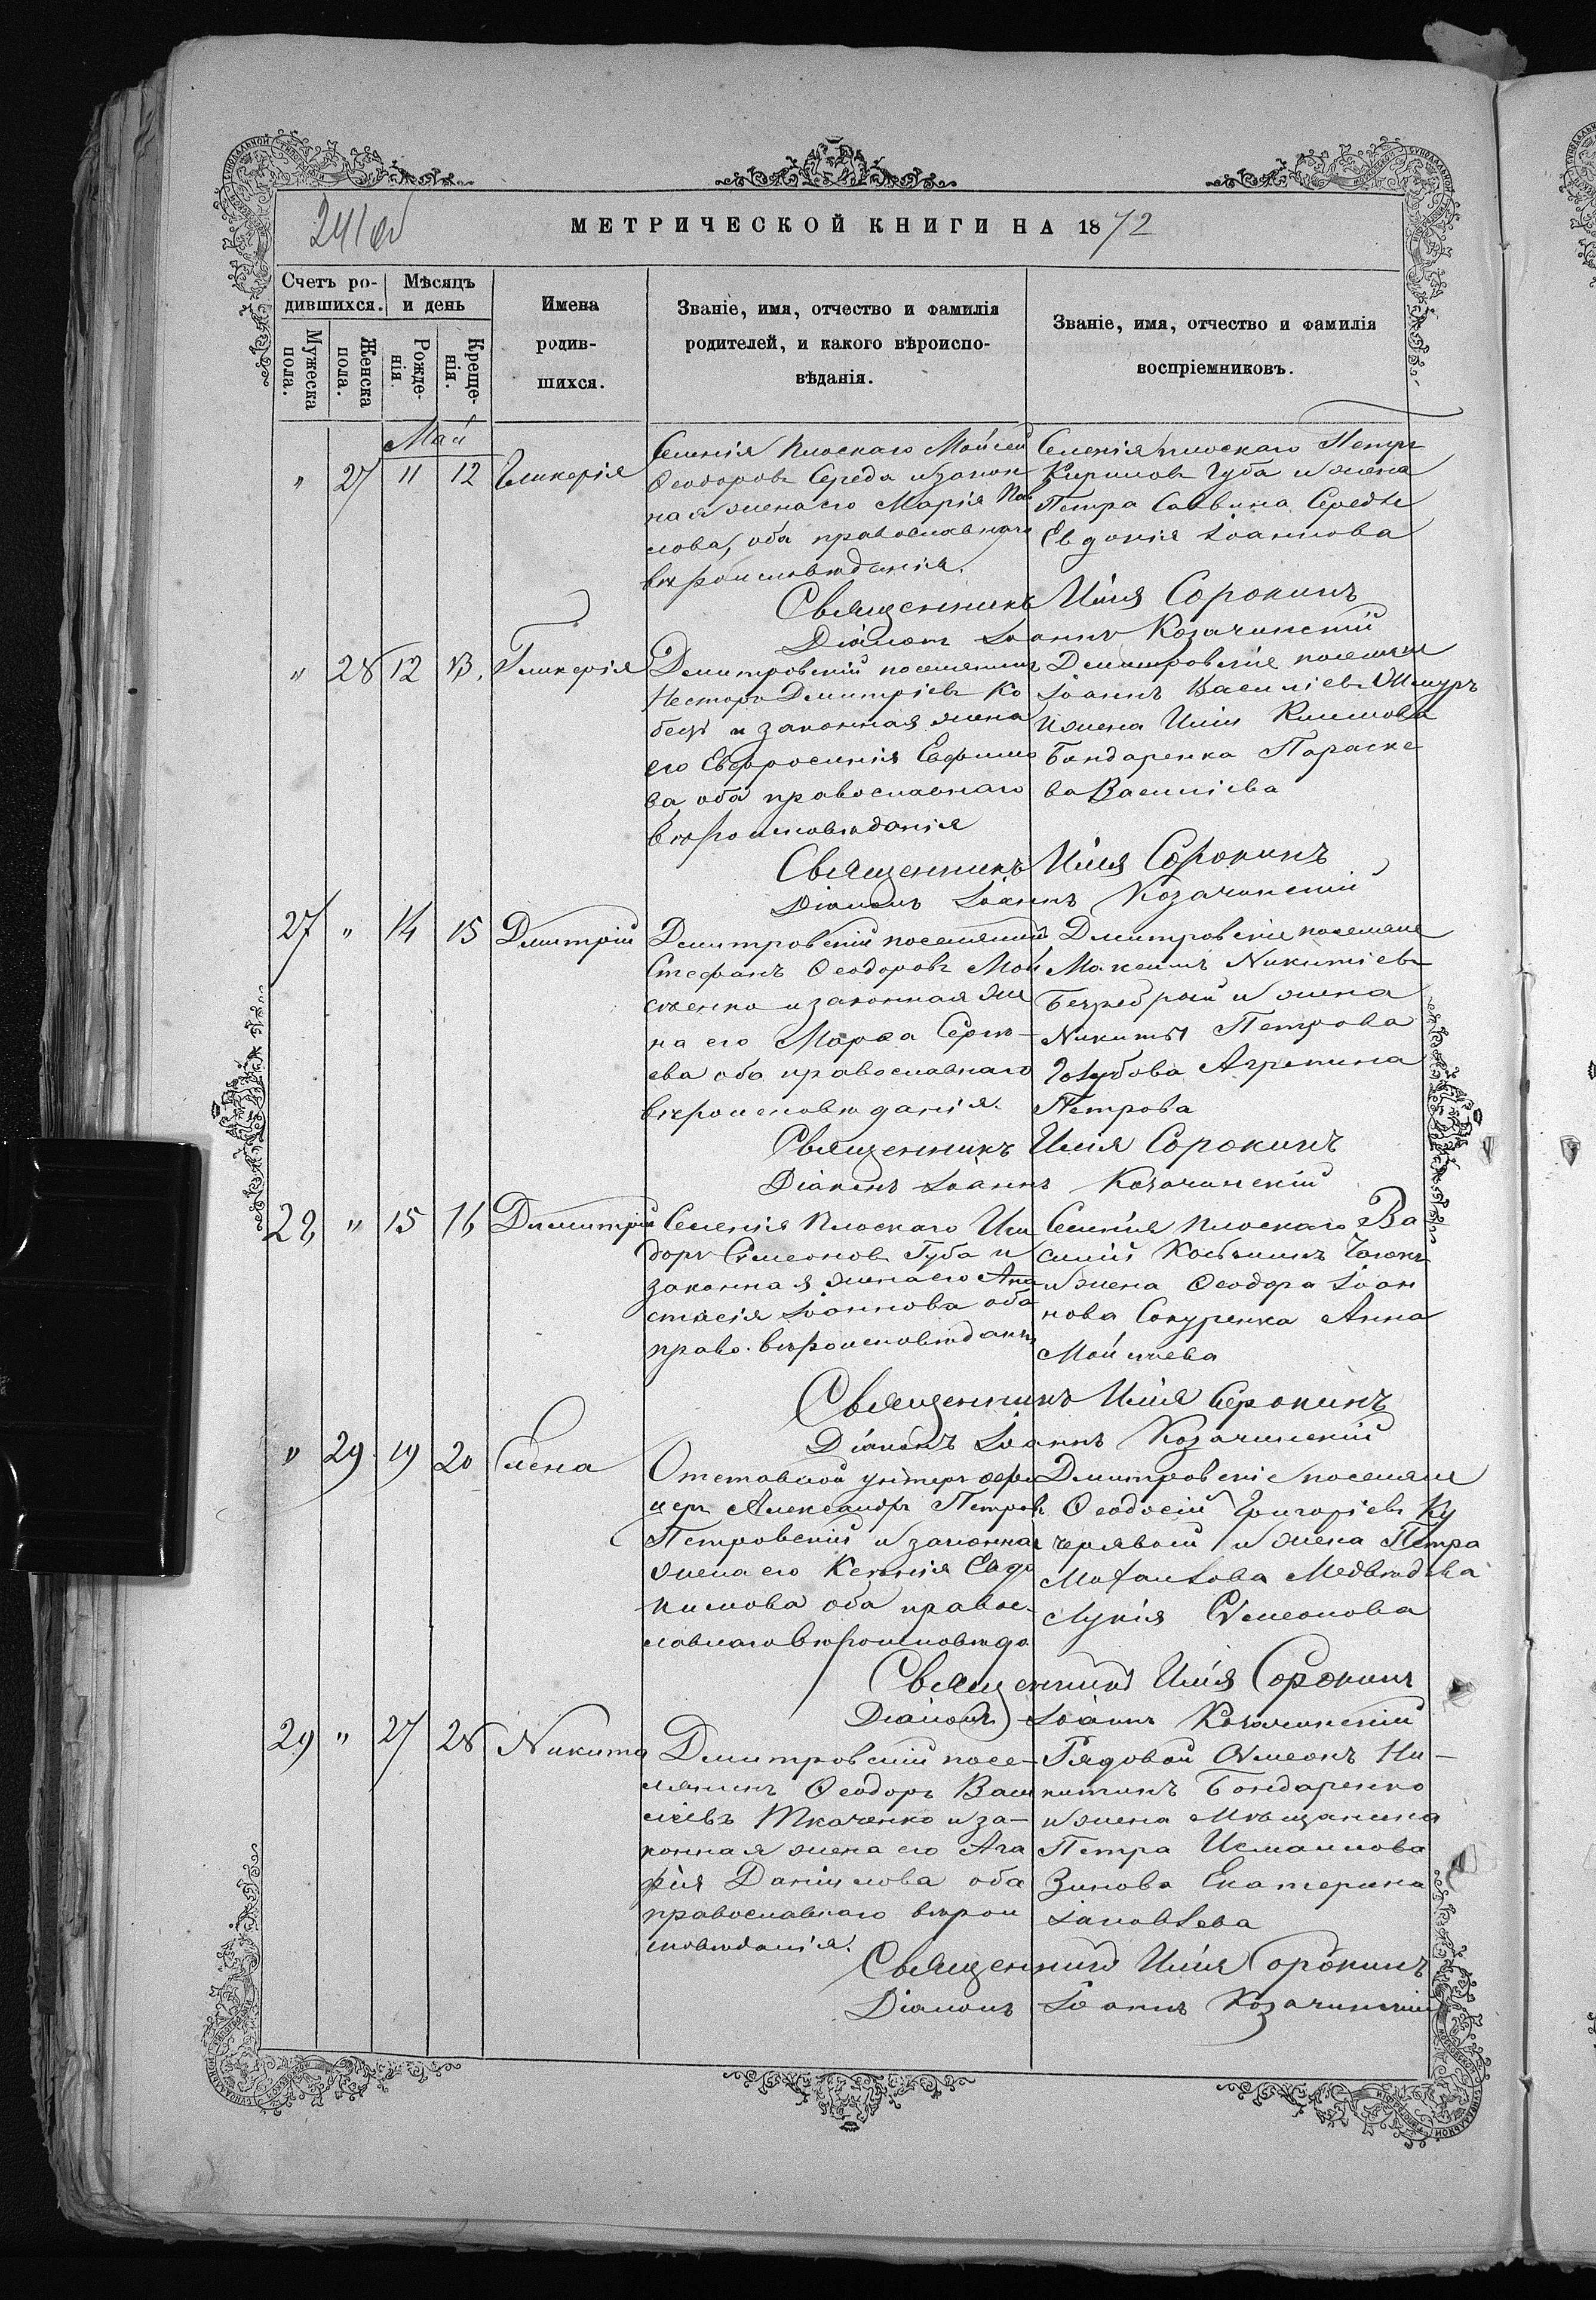 241 об
МЕТРИЧЕСКОЙ КНИГИ НА 1872
Счетъ ро-
дившихся.
Мѣсяцъ
и день
Имена
родив-
шихся.
Званіе, имя, отчество и фамилія
родителей, и какого вѣроиспо-
вѣданія.
Званіе, имя, отчество и фамилія
воспріемниковъ.
Мужеска
пола.
Женска
пола.
Рожде-
нія.
Креще-
нія.
Май
" 27 11 12 Гликерія
Селенія Плоскаго Мойсей
Ѳеодоровъ Середа и закон
ная жена его Марія Пав
лова, оба православнаго
вѣроисповѣданія.
Селенія Плоскаго Петръ
Кириловъ Губа и жена
Петра Саввина Середы
Евдокія Іоаннова
Священникъ Илія Сорокинъ
Діаконъ Іоаннъ Козачинскій
" 28 12 13. Гликерія
Дмитровскій поселянинъ
Несторъ Дмитріевъ Ко
бецъ и законная жена
его Евфросинія Евфимо
ва, оба православнаго
вѣроисповѣданія
Дмитровскіе поселяне
Іоаннъ Василіевъ
и жена Иліи Климова
Бондаренка Параске
ва Василіева
Священникъ Илія Сорокинъ
Діаконъ Іоаннъ Козачинскій
27 " 14 15 Дмитрій
Дмитровскій поселянинъ
Стефанъ Ѳеодоровъ Мой
сѣенко и законная же
на его Марѳа Сергѣ-
ева оба православнаго
вѣроисповѣданія.
Дмитровскіе поселяне
Максимъ Никитіевъ
Безребрый и жена
Никиты Петрова
Голубова Агрепина
Петрова
Священникъ Илія Сорокинъ
Діаконъ Іоаннъ Козачинскій
28 " 15 16 Димитрій
Селенія Плоскаго Иси
доръ Симеоновъ Губа и
законная жена его Ана
стасія Іоаннова оба
право. вѣроисповѣдан.
Селенія Плоскаго Ва
силій Козьминъ
и жена Ѳеодора Іоан
нова Сокуренка Анна
Мойсѣева
Священникъ Илія Сорокинъ
Діаконъ Іоаннъ Козачинскій
" 29. 19 20 Елена
Отставной унтеръ офи
церъ Александръ Петровъ
Петровскій и законная
жена его Ксенія Евдо
кимова оба правос-
лавнаго вѣроисповѣда
Дмитровскіе поселяне
Ѳеодосій Григоріевъ Ку
черявый и жена Петра
Михаилова Медвѣдева
Лукія Симеонова
Священникъ Илія Сорокинъ
Діаконъ Іоаннъ Козачинскій
29 " 27 28 Никита
Дмитровскій посе-
лянинъ Ѳеодоръ Васи
ліевъ Ткаченко и за-
конная жена его Ага
фія Даніилова оба
православнаго вѣрои
сповѣданія.
Рядовой Симеонъ Ни-
китинъ Бондаренко
и жена мѣщанина
Петра Исмаилова
Зинова Екатерина
Іаковлева
Священникъ Илія Сорокинъ
Діаконъ Іоаннъ Козачинскій